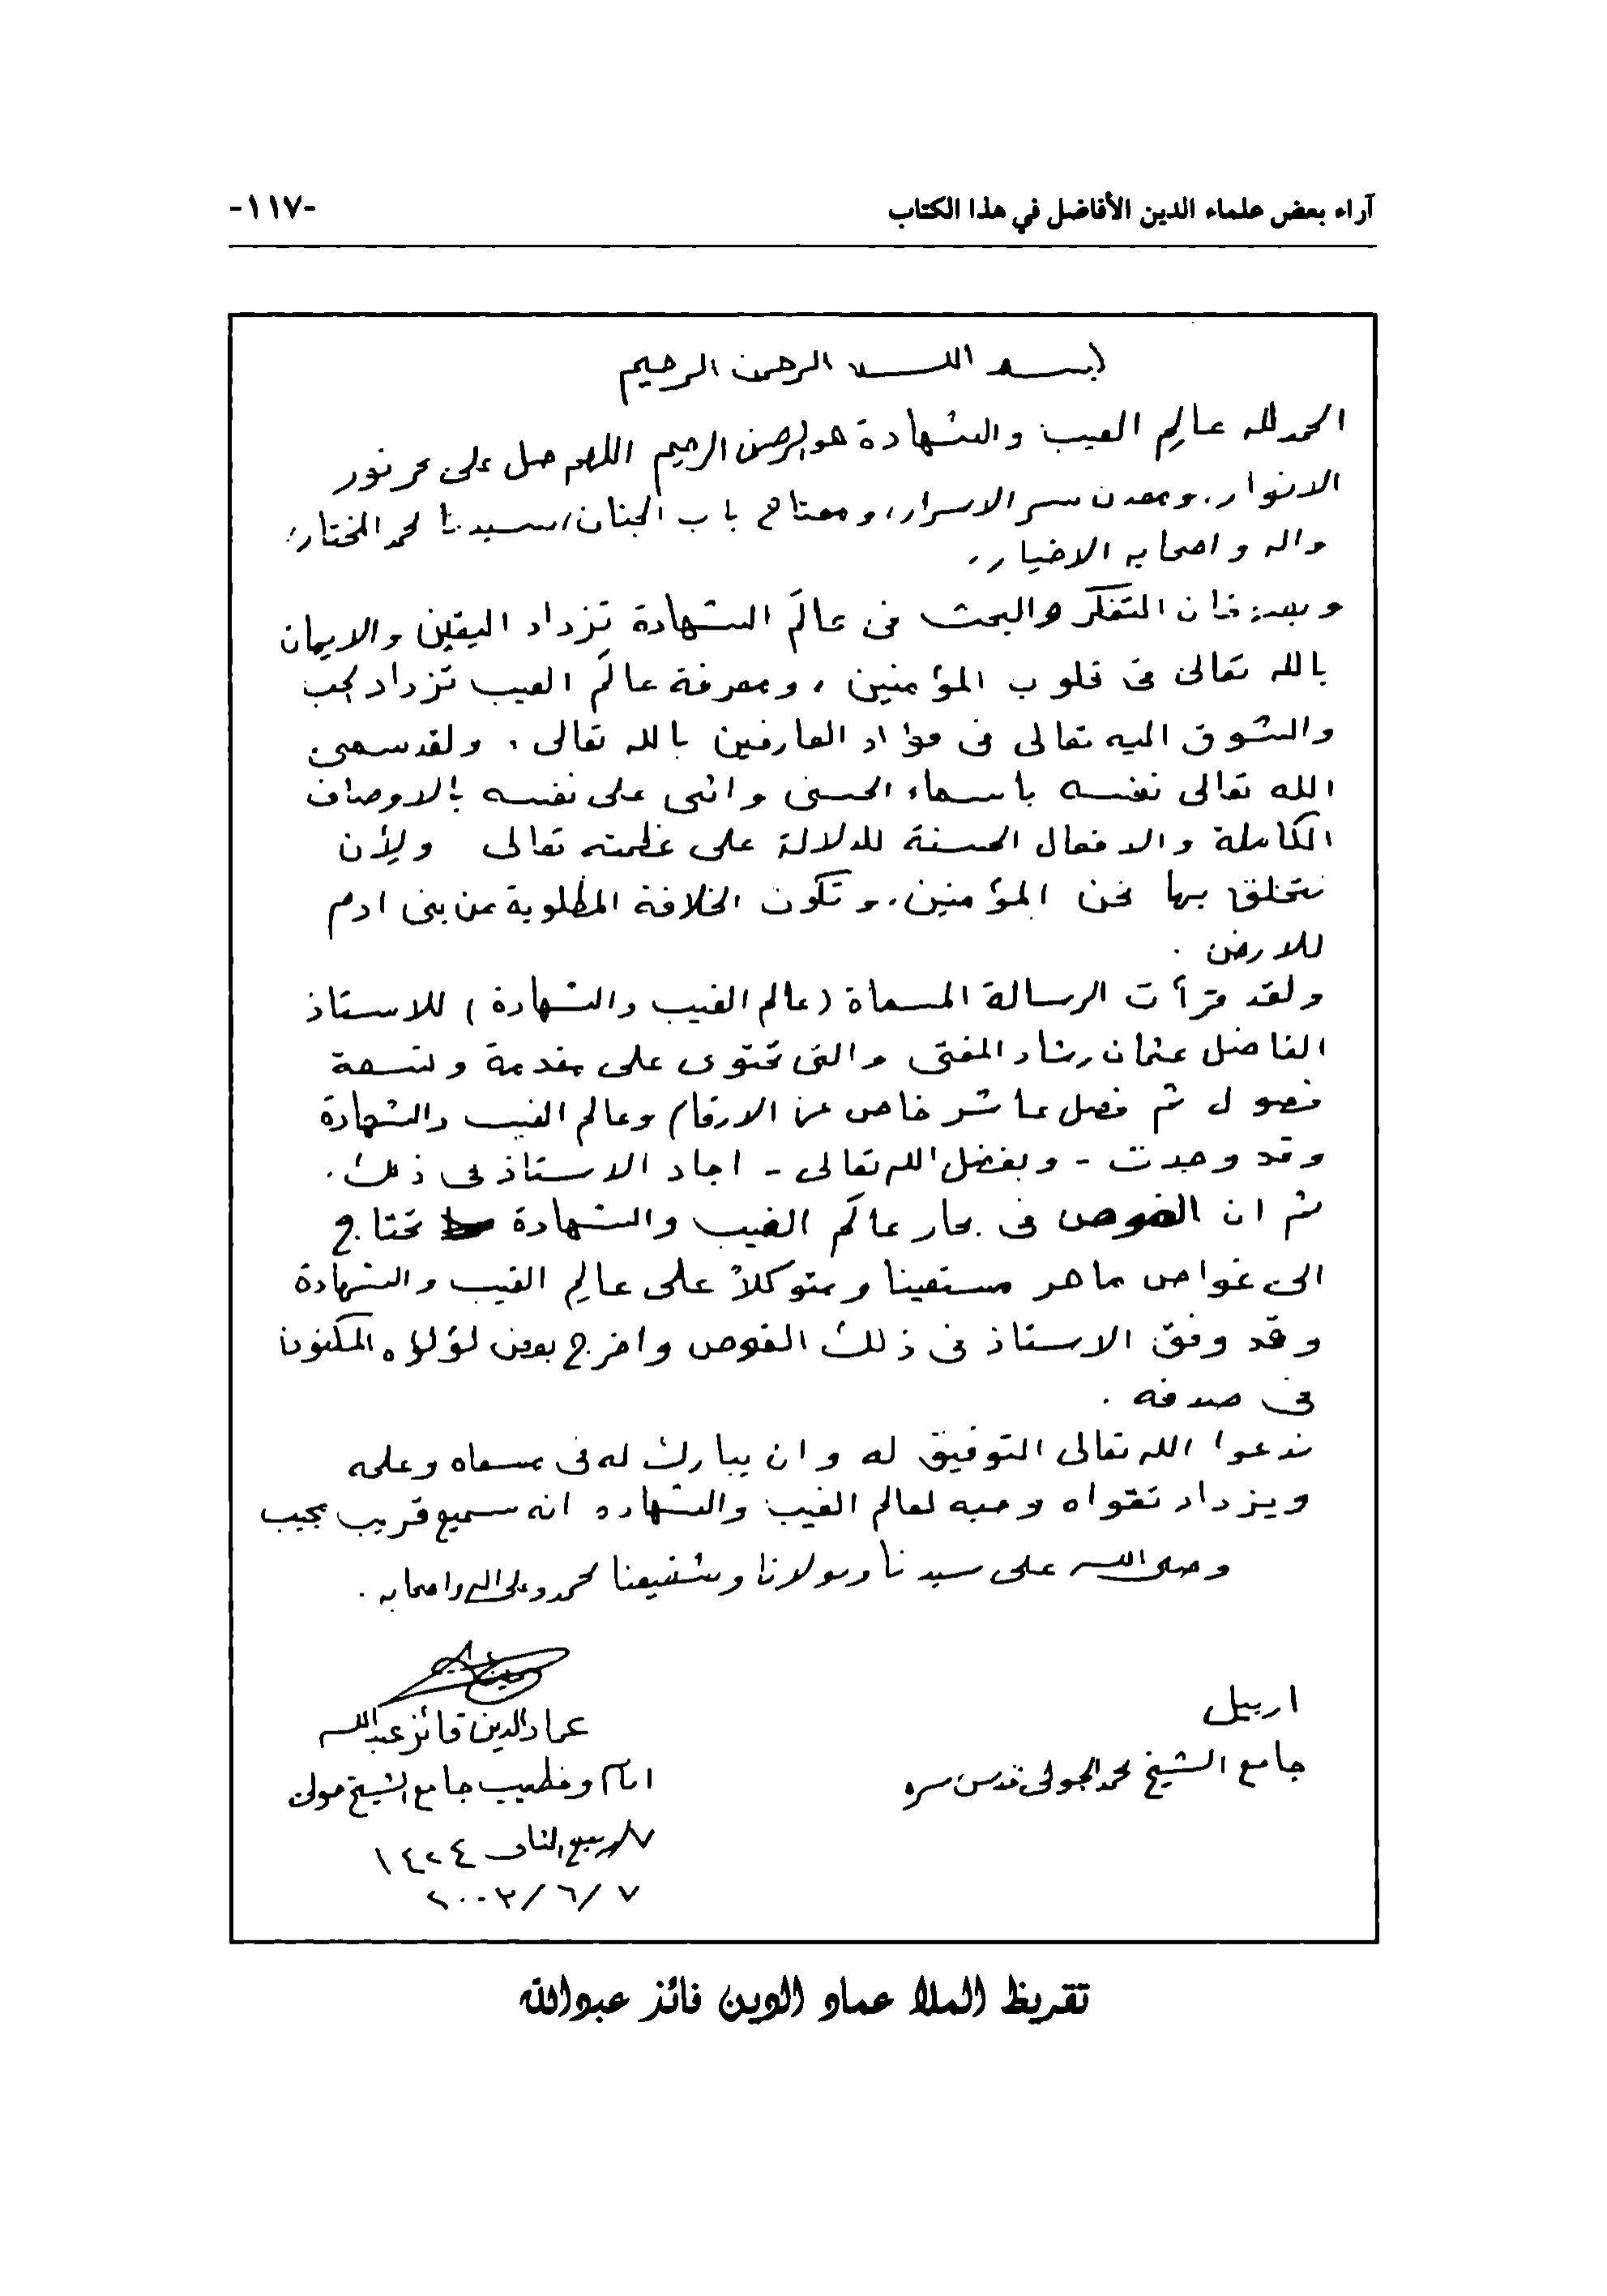 آراء بعض علماء الدين الأفاضل في هذا الكتاب
-١١٧-
بسم الله الرحمن الرحيم
الحمد لله عالِم الغيب والشهادة هو الرحمن الرحيم اللهم صل على محمد نور
الانوار، ومعدن سر الاسرار، ومفتاح باب الجنان، سيدنا محمد المختار،
واله واصحابه الاخيار.
وبعد: فان التفكر والبحث في عالَم الشهادة تزداد اليقين والايمان
بالله تعالى في قلوب المؤمنين، ومعرفة عالَم الغيب تزداد
والشوق اليه تعالى في فؤاد العارفين بالله تعالى. ولقد سمى
الله تعالى نفسه باسماء الحسنى واثنى على نفسه بالاوصاف
الكاملة والافعال الحسنة للدلالة على عظمته تعالى ولأن
نتخلق بها نحن المؤمنين. وتكون الخلافة المطلوبة من بني ادم
للارض.
ولقد قرأت الرسالة المسماة (عالم الغيب والشهادة) للاستاذ
الفاضل عثمان رشاد المفتى والتي تحتوى على مقدمة وتسعة
فصول ثم فصل عاشر خاص عن الارقام وعالم الغيب والشهادة
وقد وجدت - وبفضل الله تعالى - اجاد الاستاذ في ذلك.
ثم ان الغوص في بحار عالَم الغيب والشهادة تحتاج
الى غواص ماهر مستعينا ومتوكلاً على عالِم الغيب والشهادة
وقد وفق الاستاذ في ذلك الغوص واخرج بعض لؤلؤه المكنون
في صدفه.
ندعوا الله تعالى التوفيق له وان يبارك له في مسعاه وعلمه
ويزداد تقواه وحبه لعالم الغيب والشهاده انه سميع قريب مجيب
وصلى الله على سيدنا ومولانا وشفيعنا محمد وعلى اله واصحابه.
اربيل
جامع الشيخ محمد الجولى قدس سره
عماد الدين فائز عبدالله
امام وخطيب جامع الشيخ جولى
ربيع الثاني ١٤٢٤
٧/٦/٢٠٠٣
تقريظ الملا عماد الدين فائز عبدالله